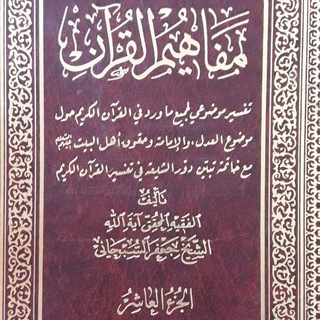 مفاهيم القرآن
تفسير موضوعي لجميع ما ورد في القرآن الكريم حول
موضوع العدل، والإمامة وحقوق أهل البيت
مع خاتمة تبيّن دور الشيعة في تفسير القرآن الكريم
تأليف
الفقيه المحقق آية الله
الشيخ جعفر السبحاني
الجزء العاشر